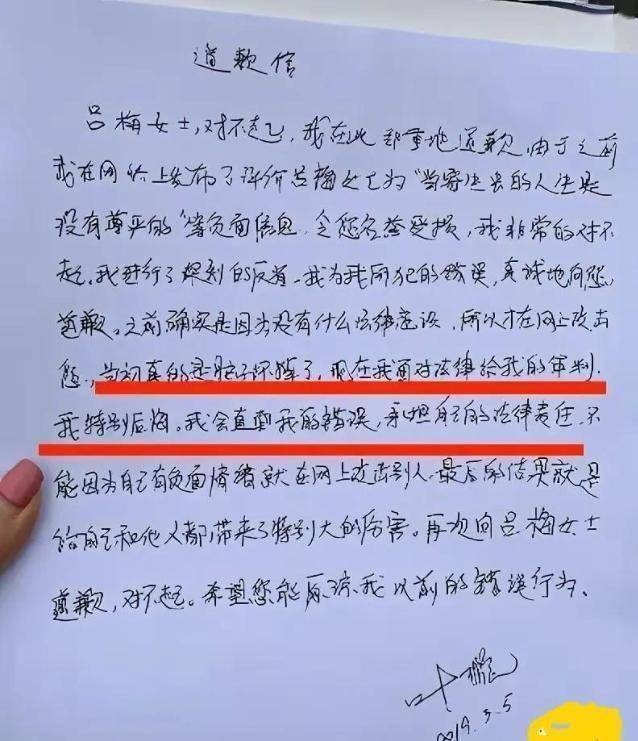 道歉信
吕梅女士,对不起,我在此郑重地道歉,由于之前
我在网络上发布了评价吕梅女士为"当寄生虫的人生是
没有尊严的"等负面信息,令您名誉受损,我非常的对不
起。我进行了深刻的反省。我为我所犯的错误,真诚地向您
道歉。之前确实是因为没有什么法律意识,所以才在网上攻击
您,当初真的是脑子坏掉了,现在我面对法律给我的审判.
我特别后悔。我会直面我的错误,承担自己的法律责任.不
能因为自己有负面情绪就在网上攻击别人.最后的结果就是
给自己和他人都带来了特别大的伤害。再次向吕梅女士
道歉,对不起。希望您能原谅我以前的错误行为.
叶
2019.3.5